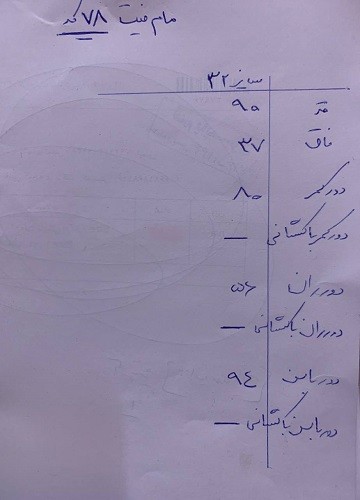 مام فیت ۷۸ کد
سایز ۳۲
قد ۹۰
فاق ۳۷
دور کمر ۸۰
دور کمر با کشسانی —
دور ران ۵۶
دور ران با کشسانی —
دور باسن ۹۴
دور باسن با کشسانی —